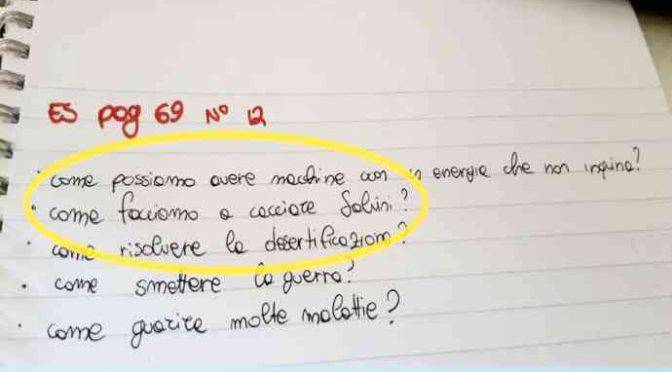 ES pag 69 N° 12
• come possiamo avere machine con un energia che non inquina?
• come facciamo a cacciare Salvini?
• come risolvere la desertificazioni?
• come smettere la guerra?
• come guarire molte malattie?